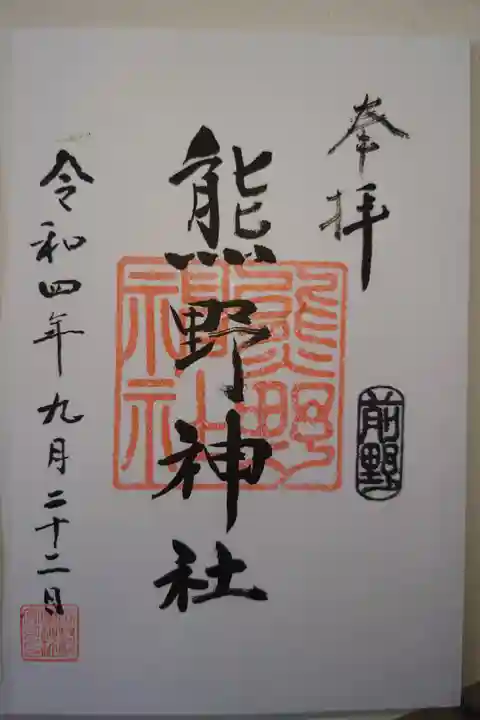 奉拝
前野
熊野神社
熊野
神社
令和四年九月二十二日